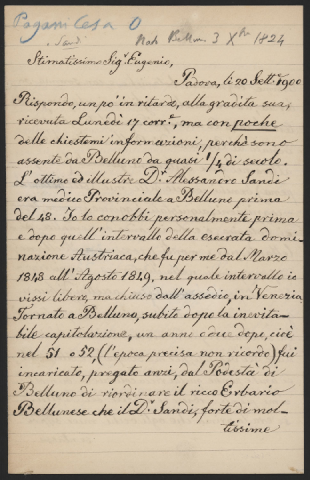 Pagani Cesa O
Sandi
Nato Belluno 3 Xbre 1824
Stimatissimo Sigr. Eugenio,
Padova, li 20 Settre 1900
Rispondo, un po' in ritardo, alla gradita sua,
ricevuta Lunedì 17 corre, ma con poche
delle chiestemi informazioni, perchè sono
assente da Belluno da quasi 1/4 di secolo.
L'ottimo ed illustre Dr. Alessandro Sandi
era medico Provinciale a Belluno prima
del 48. Io lo conobbi personalmente prima
e dopo quell'intervallo della esecrata domi-
nazione Austriaca, che fu per me dal Marzo
1848 all'Agosto 1849, nel quale intervallo io
vissi libero, ma chiuso dall'assedio, in Venezia
Tornato a Belluno, subito dopo la inevita-
bile capitolazione, un anno o due dopo, cioè
nel 51 o 52, (l'epoca precisa non ricordo) fui
incaricato, pregato anzi, dal Podestà di
Belluno di riordinare il ricco Erbario
Bellunese che il Dr. Sandi, forte di mol-
tissime